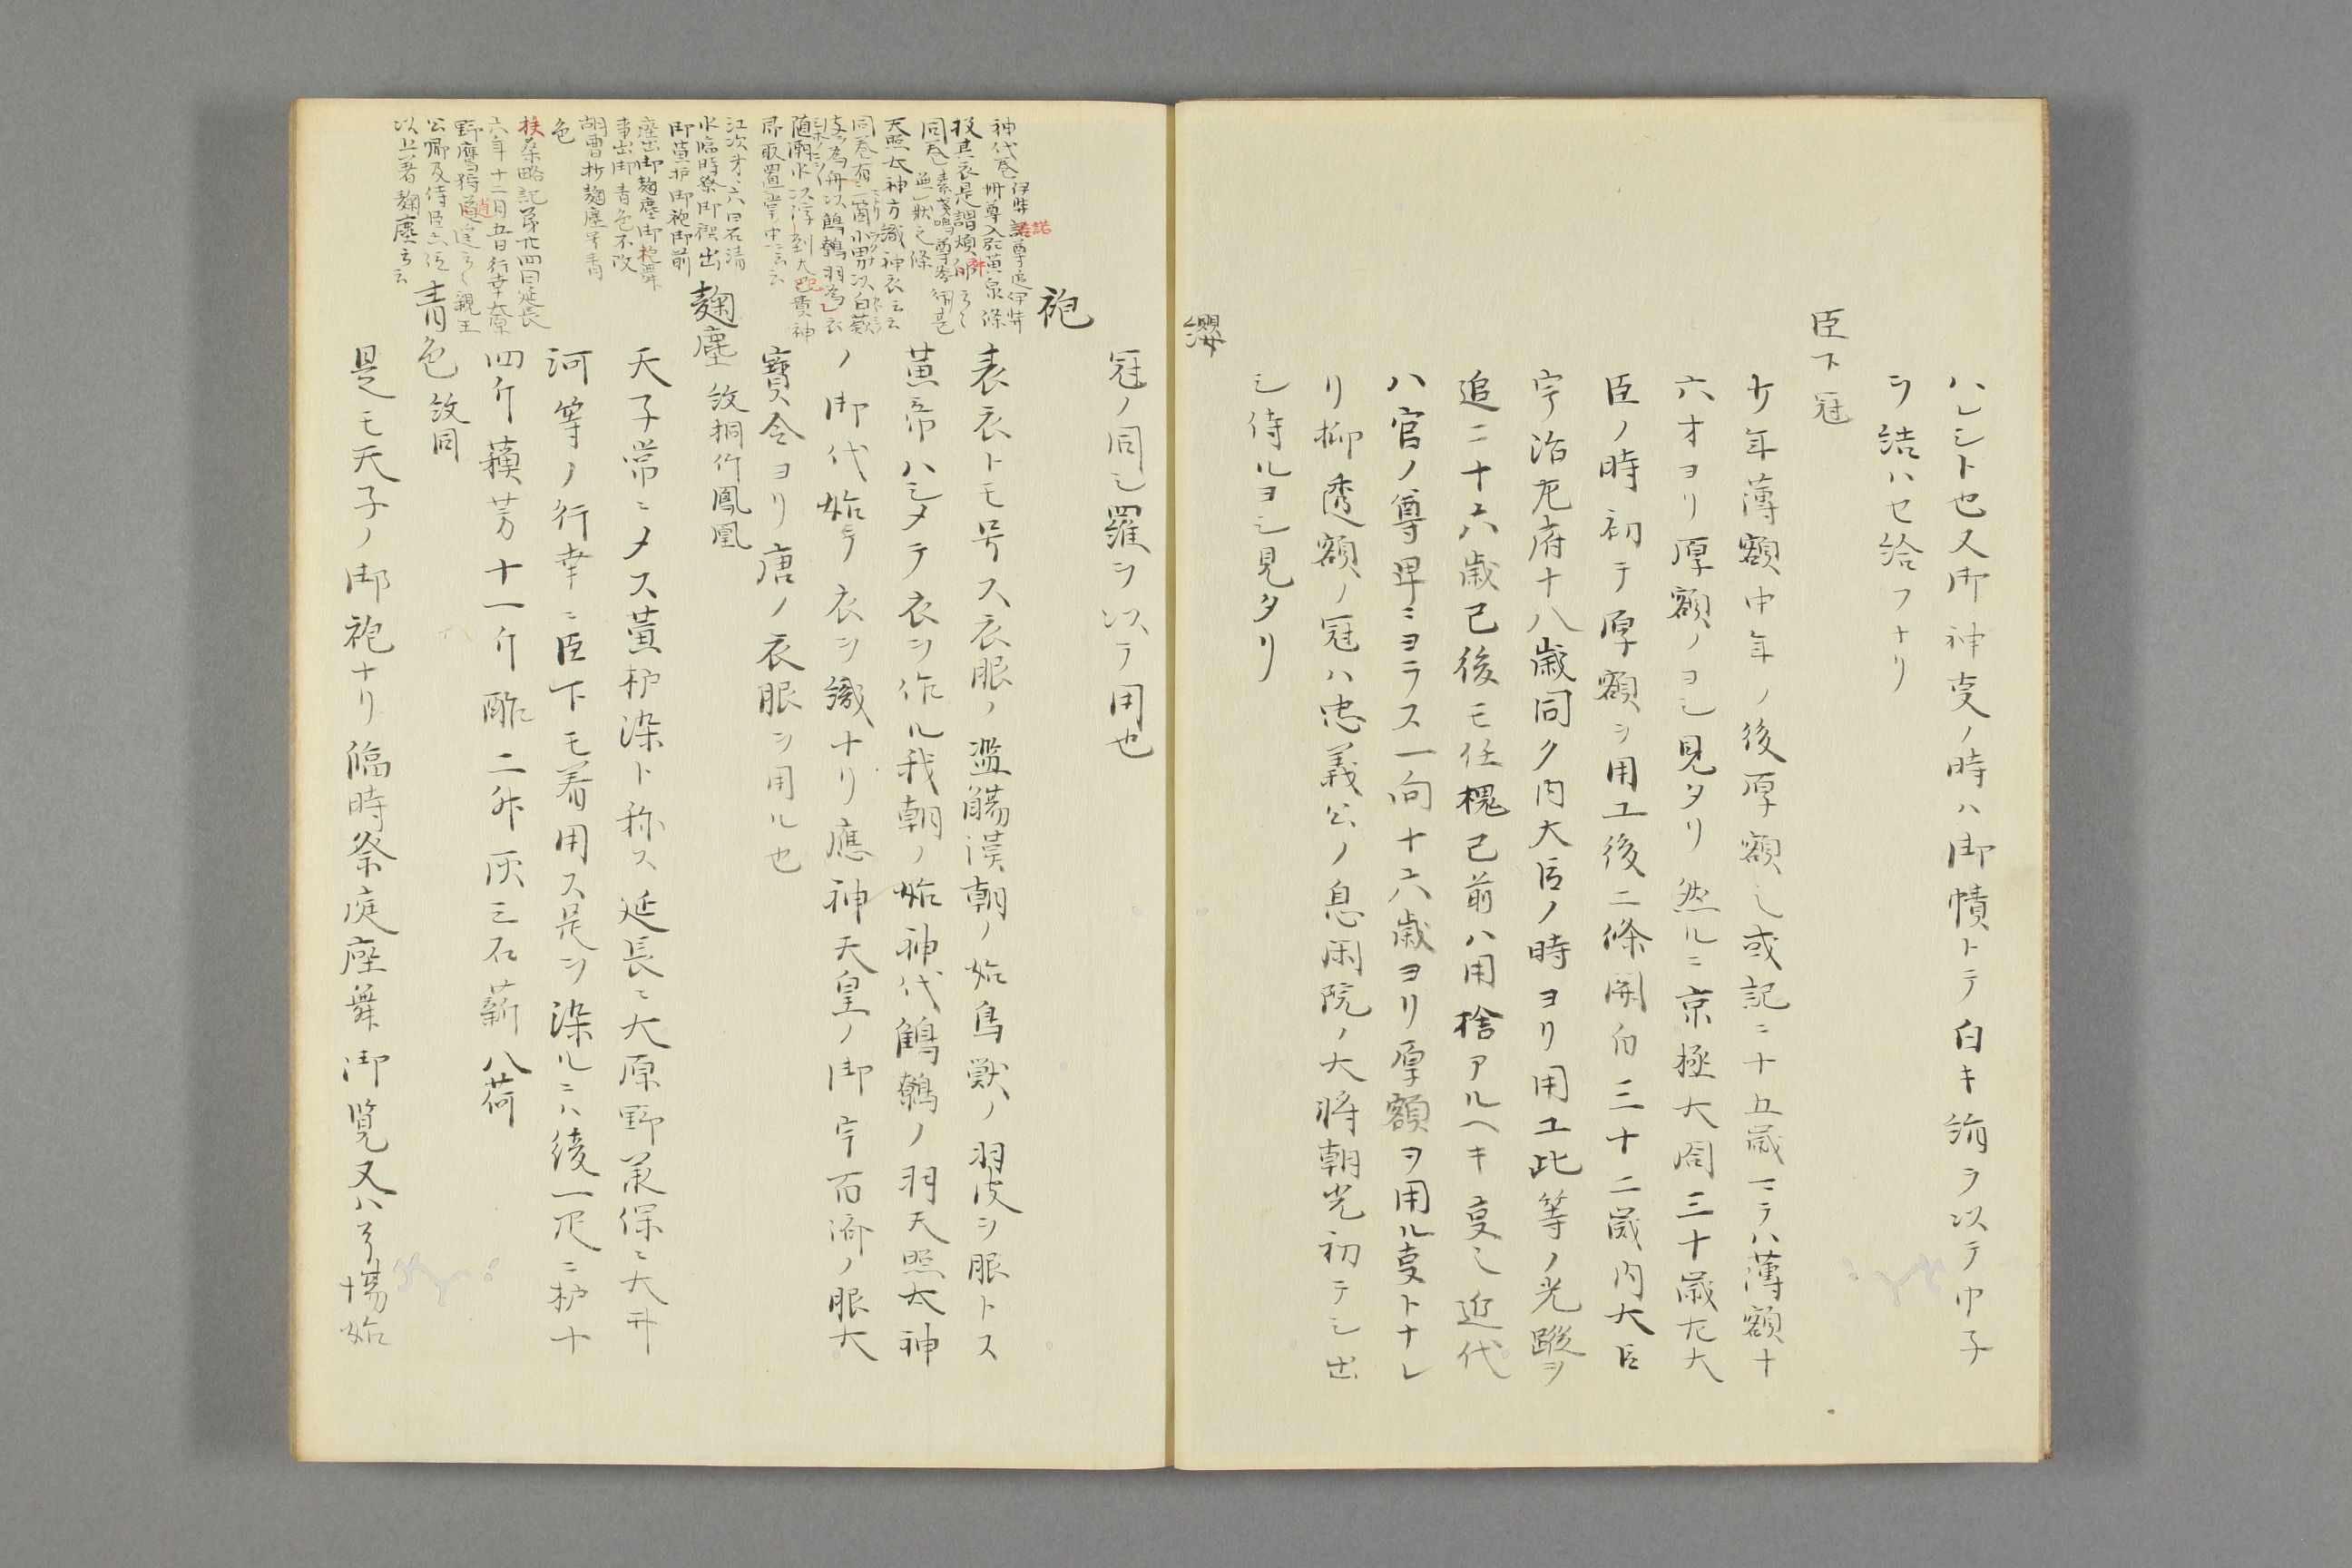 ハレシト也又御神叓ノ時ハ御幘トテ白キ絹ヲ以テ巾子
ヲ結ハセ給フナリ
臣下冠
廿年薄額中年ノ後厚額也或記ニ十五歳マテハ薄額十
六才ヨリ厚額ノヨシ見タリ然ルニ京極大閤三十歳左大
臣ノ時初テ厚額ヲ用ユ後二條関白三十二歳内大臣
宇治左府十八歳同ク内大臣ノ時ヨリ用ユ此等ノ先蹤ヲ
追ニ十六歳已後モ任槐已前ハ用捨アルヘキ叓也近代
ハ官ノ尊卑ニヨラス一向十六歳ヨリ厚額ヲ用ル叓トナレ
リ抑透額ノ冠ハ忠義公ノ息閑院ノ大将朝光初テシ出
シ侍ルヨシ見タリ
纓
冠ノ同シ羅ヲ以テ用也
袍
表衣トモ号ス衣服ノ濫觴漢朝ノ始鳥獣ノ羽皮ヲ服トス
黄帝ハシメテ衣ヲ作ル我朝ノ始神代鷦鷯ノ羽天照太神
ノ御代始テ衣ヲ織ナリ應神天皇ノ御宇百済ノ服大
寶令ヨリ唐ノ衣服ヲ用ル也
麹塵 紋桐竹鳳凰
天子常ニメス黄櫨染ト称ス延長ニ大原野承保ニ大井
河等ノ行幸ニ臣下モ着用ス是ヲ染ルニハ綾一疋ニ櫨十
四斤蘓芳十一斤酢二升灰三石薪八荷
青色 紋同
是モ天子ノ御袍ナリ臨時祭庭座舞御覧又ハ弓場始
神代巻 伊弉諾尊追伊弉
冊尊入於黄泉條
投其衣是謂煩神云々
同巻 素戔嗚尊
無状之條
天照太神方織神衣云々
同巻有一箇小男以白蘞
皮為舟以鷦鷯羽為衣
随潮水以浮到大己貴神
即取置掌中云々
江次才六曰石清
水臨時祭御禊出
御黄櫨御袍御前
座出御麹塵御袍舞
事出御青色不改
胡曹抄麹塵号青
色
扶桑略記第廿四曰延長
六年十二月五日行幸大原
野鷹狩逍遥云々親王
公卿及侍臣六位
以上著麹塵云云